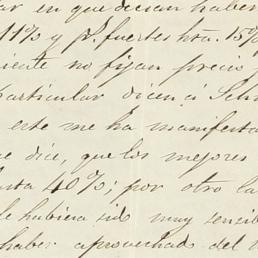 ar en que decian haber
11% y pl. fuertes hta. 15%
iente no fijan precio y
particular dicen, á Sch
este me ha manifesta
e dice, que los mejores
sta 40%; por otro la
le hubiera sido muy sensib
haber aprovechado del v